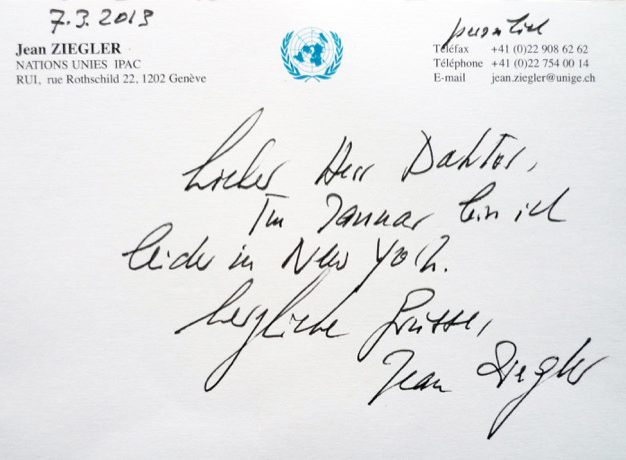 7.3.2013
persönlich
Jean ZIEGLER
NATIONS UNIES IPAC
RUI, rue Rothschild 22, 1202 Genève
Téléfax +41 (0)22 908 62 62
Téléphone +41 (0)22 754 00 14
E-mail jean.ziegler@unige.ch
Lieber Herr Doktor,
Im Januar bin ich
leider in New York.
herzliche Grüsse,
Jean Ziegler